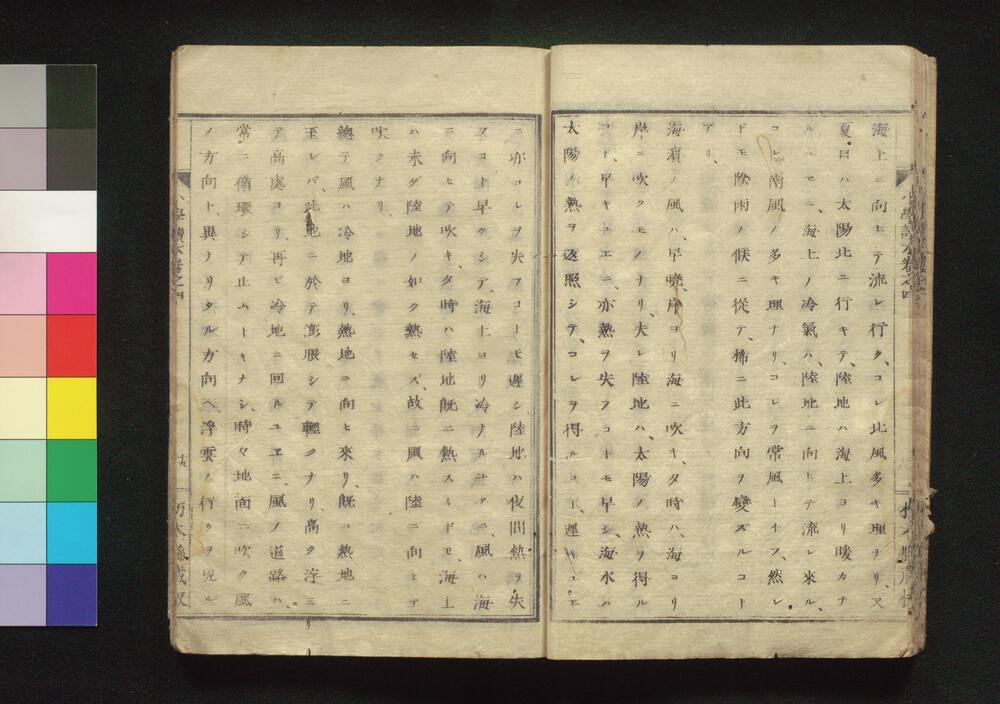 海上ニ向ヒテ流レ行ク、コレ北風多キ理ナリ、又
夏日ハ太陽北ニ行キテ、陸地ハ海上ヨリ暖カナ
ルユヱニ、海上ノ冷氣ハ、陸地ニ向ヒテ流レ來ル、
コレ南風ノ多キ理ナリ、コレヲ常風トイフ、然レ
ドモ陰雨ノ候ニ從テ、稀ニ此方向ヲ變ズルコト
アリ、
海濱ノ風ハ、早曉、岸ヨリ海ニ吹キ、夕時ハ、海ヨリ
岸ニ吹クモノナリ、夫レ陸地ハ、太陽ノ熱ヲ得ル
コト、早キユヱニ、亦熱ヲ失フコトモ早シ、海水ハ
太陽ノ熱ヲ返照シテ、コレヲ得ルコト、遲キユヱ
ニ亦コレヲ失フコトモ遲シ、陸地ハ夜間熱ヲ失
フコト早クシテ、海上ヨリ冷ナルユヱニ、風ハ海
ニ向ヒテ吹キ、夕時ハ陸地既ニ熱スレドモ、海上
ハ未ダ陸地ノ如ク熱セズ、故ニ風ハ陸ニ向ヒテ
吹クナリ、
總テ風ハ冷地ヨリ、熱地ニ向ヒ來リ、既ニ熱地ニ
至レバ、此地ニ於テ澎脹シテ輕クナリ、高ク浮ミ
テ高處ヨリ、再ビ冷地ニ回ルユヱニ、風ノ道路ハ、
常ニ循環シテ止ムトキナシ、時々地面ニ吹ク風
ノ方向ト、異ナリタル方向ヘ、浮雲ノ行クヲ見ル
小學讀本卷之四
十九